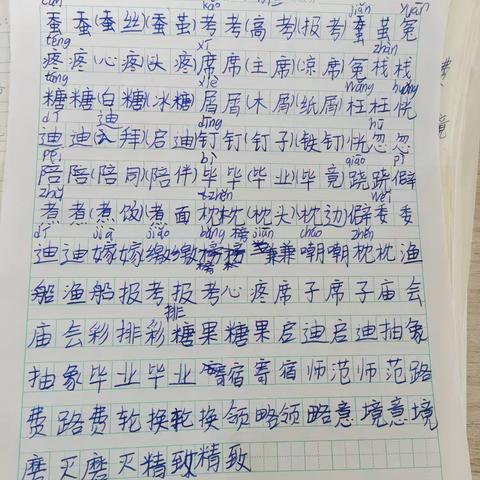 cán kǎo jiǎn yuān
蚕蚕(蚕丝)(蚕茧)考考(高考)(报考)茧茧冤
téng xí zhàn
疼疼(心疼)(头疼)席席(主席)(凉席)冤栈栈
táng xiè wǎng huǎng
糖糖(白糖)(冰糖)屑屑(木屑)(纸屑)枉枉恍
dí dīng hū
迪迪(拜)(启迪)钉钉(钉子)(铁钉)恍忽忽
péi bì qiāo pì
陪陪(陪同)(陪伴)毕毕(毕业)(毕竟)跷跷僻
zhǔ zhěn wěi
煮煮(煮饭)(煮面)枕枕(枕头)(枕边)僻委委
dí jià jiǎo bǎng jiān cháo zhěn
迪迪嫁嫁缴缴榜榜兼兼嘲嘲枕枕渔
船渔船报考报考心疼席子席子庙会
庙会彩排彩排糖果糖果启迪启迪抽象
抽象毕业毕业寄宿寄宿师范师范路
费路费轮换轮换领略领略意境意境
磨灭磨灭精致精致